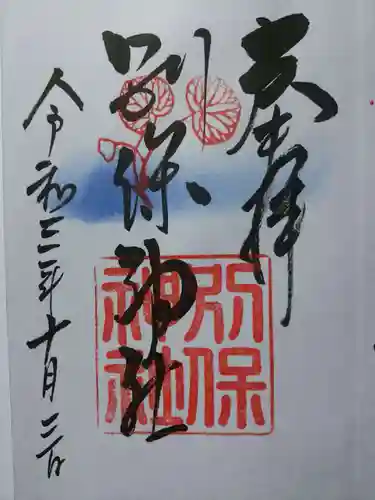 奉拝
別保神社
別保
神社
令和三年十月三日